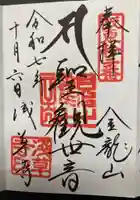 奉拝
金龍山
聖観世音
浅草寺
令和七年
十月六日